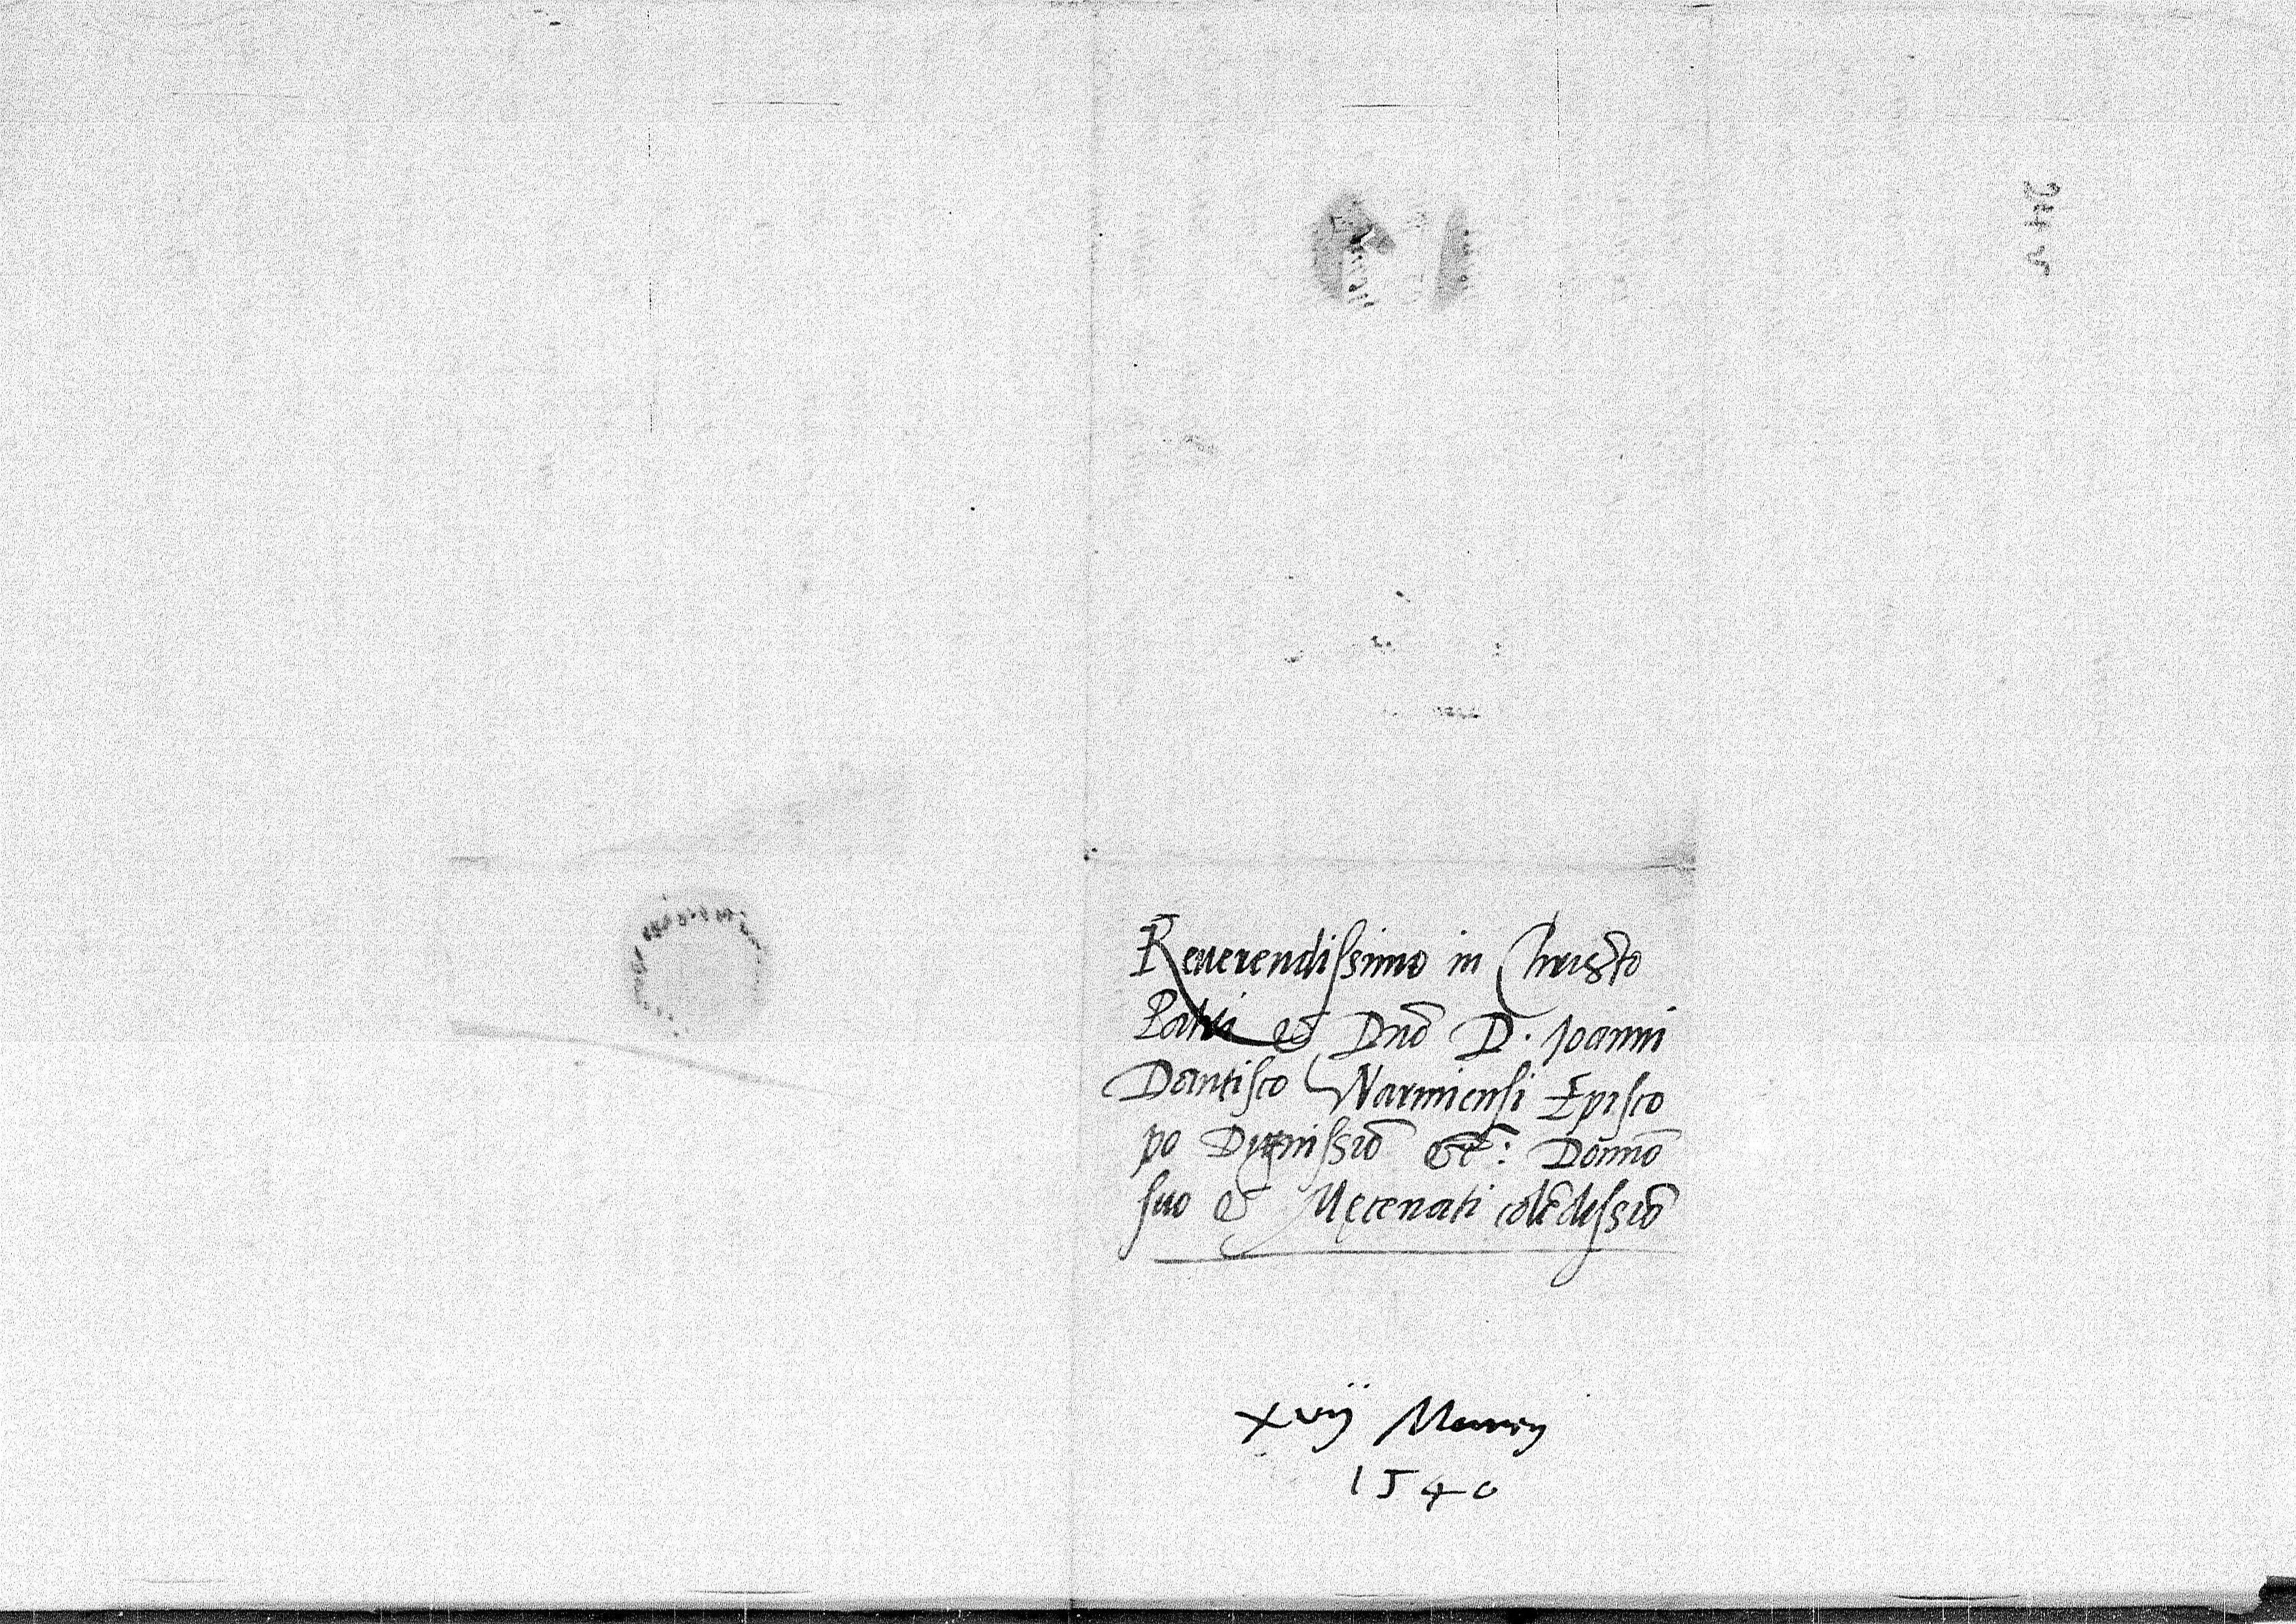 Reuerendissimo in Christo
Patri et Dno D. Joanni
Dantisco Warmiensi Episco
po Dignissio etc: Domno
suo et Mecenati colēdissio
xvij Marcij
1540